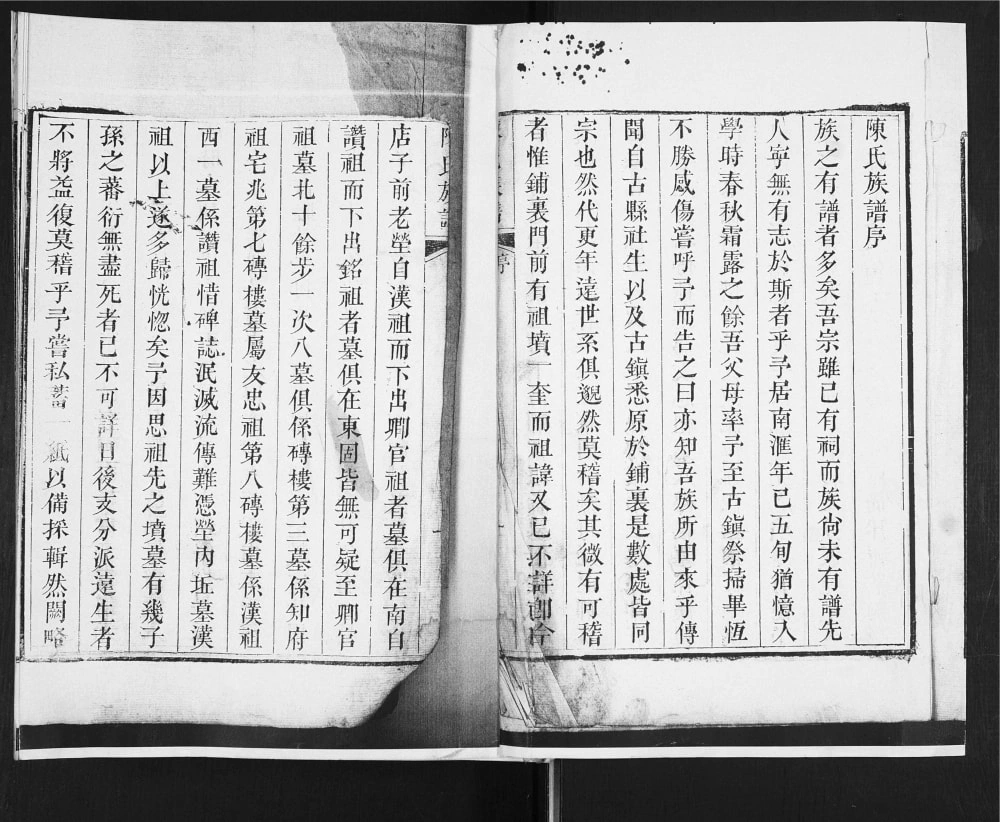 陳氏族譜序
族之有譜者多矣吾宗雖已有祠而族尙未有譜先
人寧無有志於斯者乎予居南滙年已五旬猶憶入
學時春秋霜露之餘吾父母率予至古鎭祭掃畢恆
不勝感傷嘗呼予而告之曰亦知吾族所由來乎傳
聞自古縣社生以及古鎭悉原於鋪裏是數處皆同
宗也然代更年遠世系俱邈然莫稽矣其微有可稽
者惟鋪裏門前有祖墳一奎而祖諱又已不詳卽今
陳氏族譜
序
一
店子前老塋自漢祖而下出卿官祖者墓俱在南自
讚祖而下出銘祖者墓俱在東固皆無可疑至卿官
祖墓北十餘步一次八墓俱係磚樓第三墓係知府
祖宅兆第七磚樓墓屬友忠祖第八磚樓墓係漢祖
西一墓係讚祖惜碑誌泯滅流傳難憑塋內坵墓漢
祖以上遂多歸恍惚矣予因思祖先之墳墓有幾子
孫之蕃衍無盡死者已不可詳日後支分派遠生者
不將益復莫稽乎予嘗私蓄一紙以備採輯然闕略